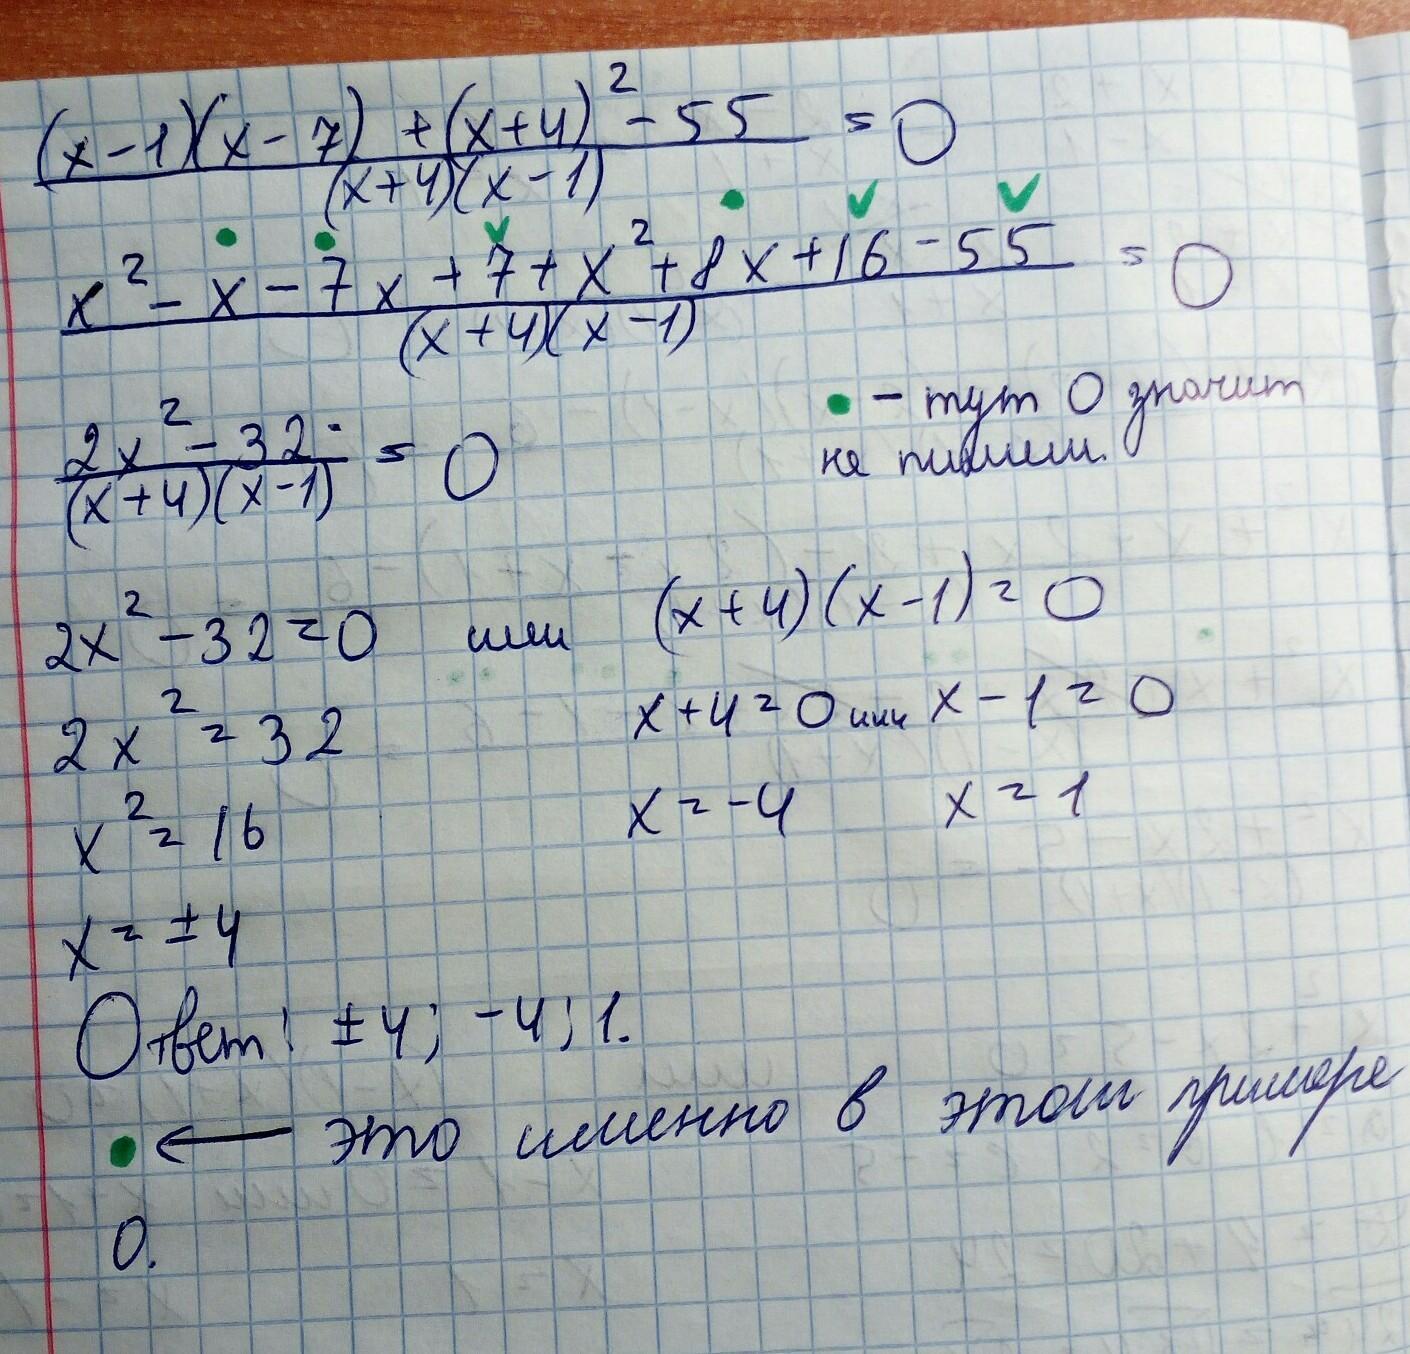 (x-1)(x-7) + (x+4)² - 55 = 0
(x+4)(x-1)
x² - x - 7x + 7 + x² + 8x + 16 - 55 = 0
(x+4)(x-1)
2x² - 32 = 0
(x+4)(x-1)
• - тут 0 значит
не пишем.
2x² - 32 = 0 или (x+4)(x-1) = 0
2x² = 32 x+4=0 или x-1=0
x² = 16 x = -4 x = 1
x = ±4
Ответ: ±4; -4; 1.
• ← это именно в этом примере
0.